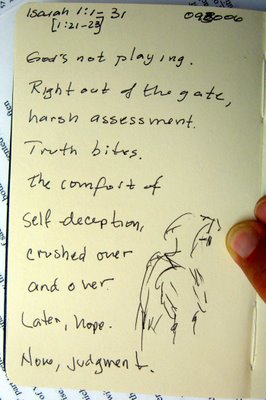 Isaiah 1:1-31
[1:21-23]
God's not playing.
Right out of the gate,
harsh assessment.
Truth bites.
The comfort of
self-deception,
crushed over
and over.
Later, hope.
Now, judgment.